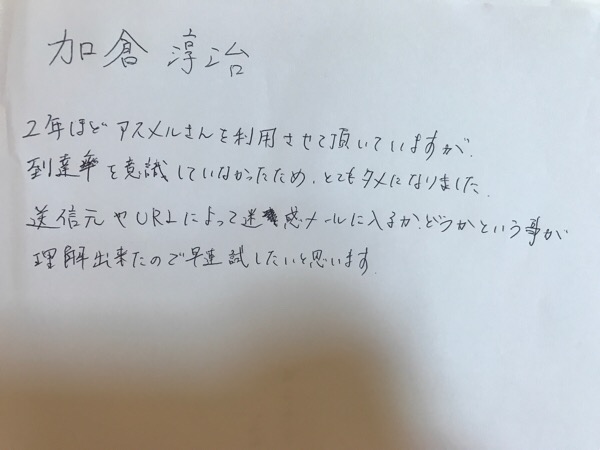 加倉 淳治
2年ほどアスメルさんを利用させて頂いていますが、
到達率を意識していなかったため、とてもタメになりました。
送信元やURLによって迷惑メールに入るか、どうかという事が
理解出来たので早速試したいと思います。